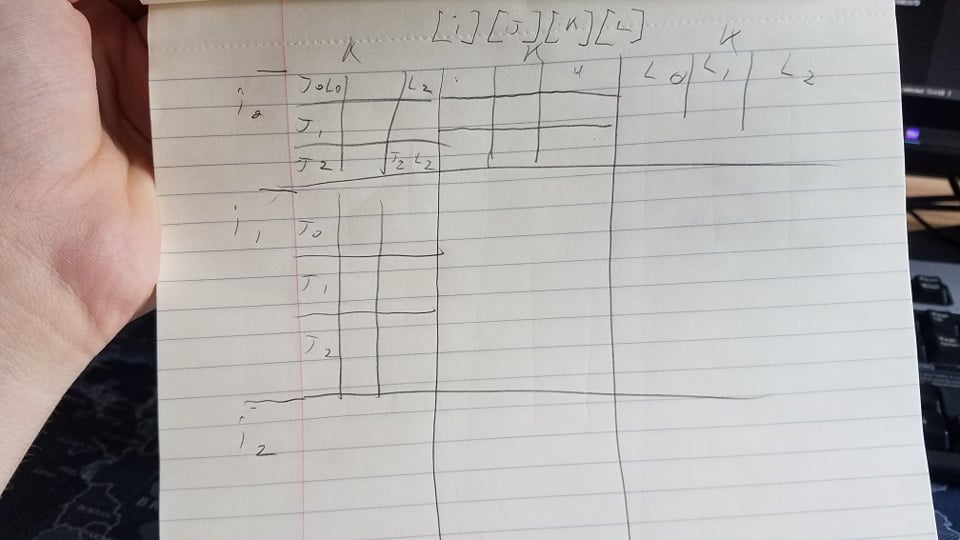 [i][J][K][L]
K K K
i₀ J₀L₀ L₂ L₀ L₁ L₂
J₁
J₂ J₂L₂
i₁ J₀
J₁
J₂
i₂